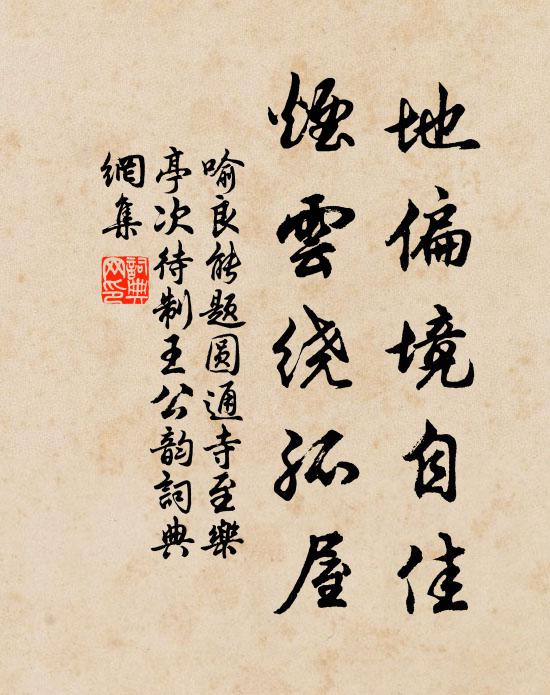 地偏境自佳
煙雲绕孤屋
喻良能题圆通寺至樂
亭次待制王公韵詞典
網集
詞典
网印